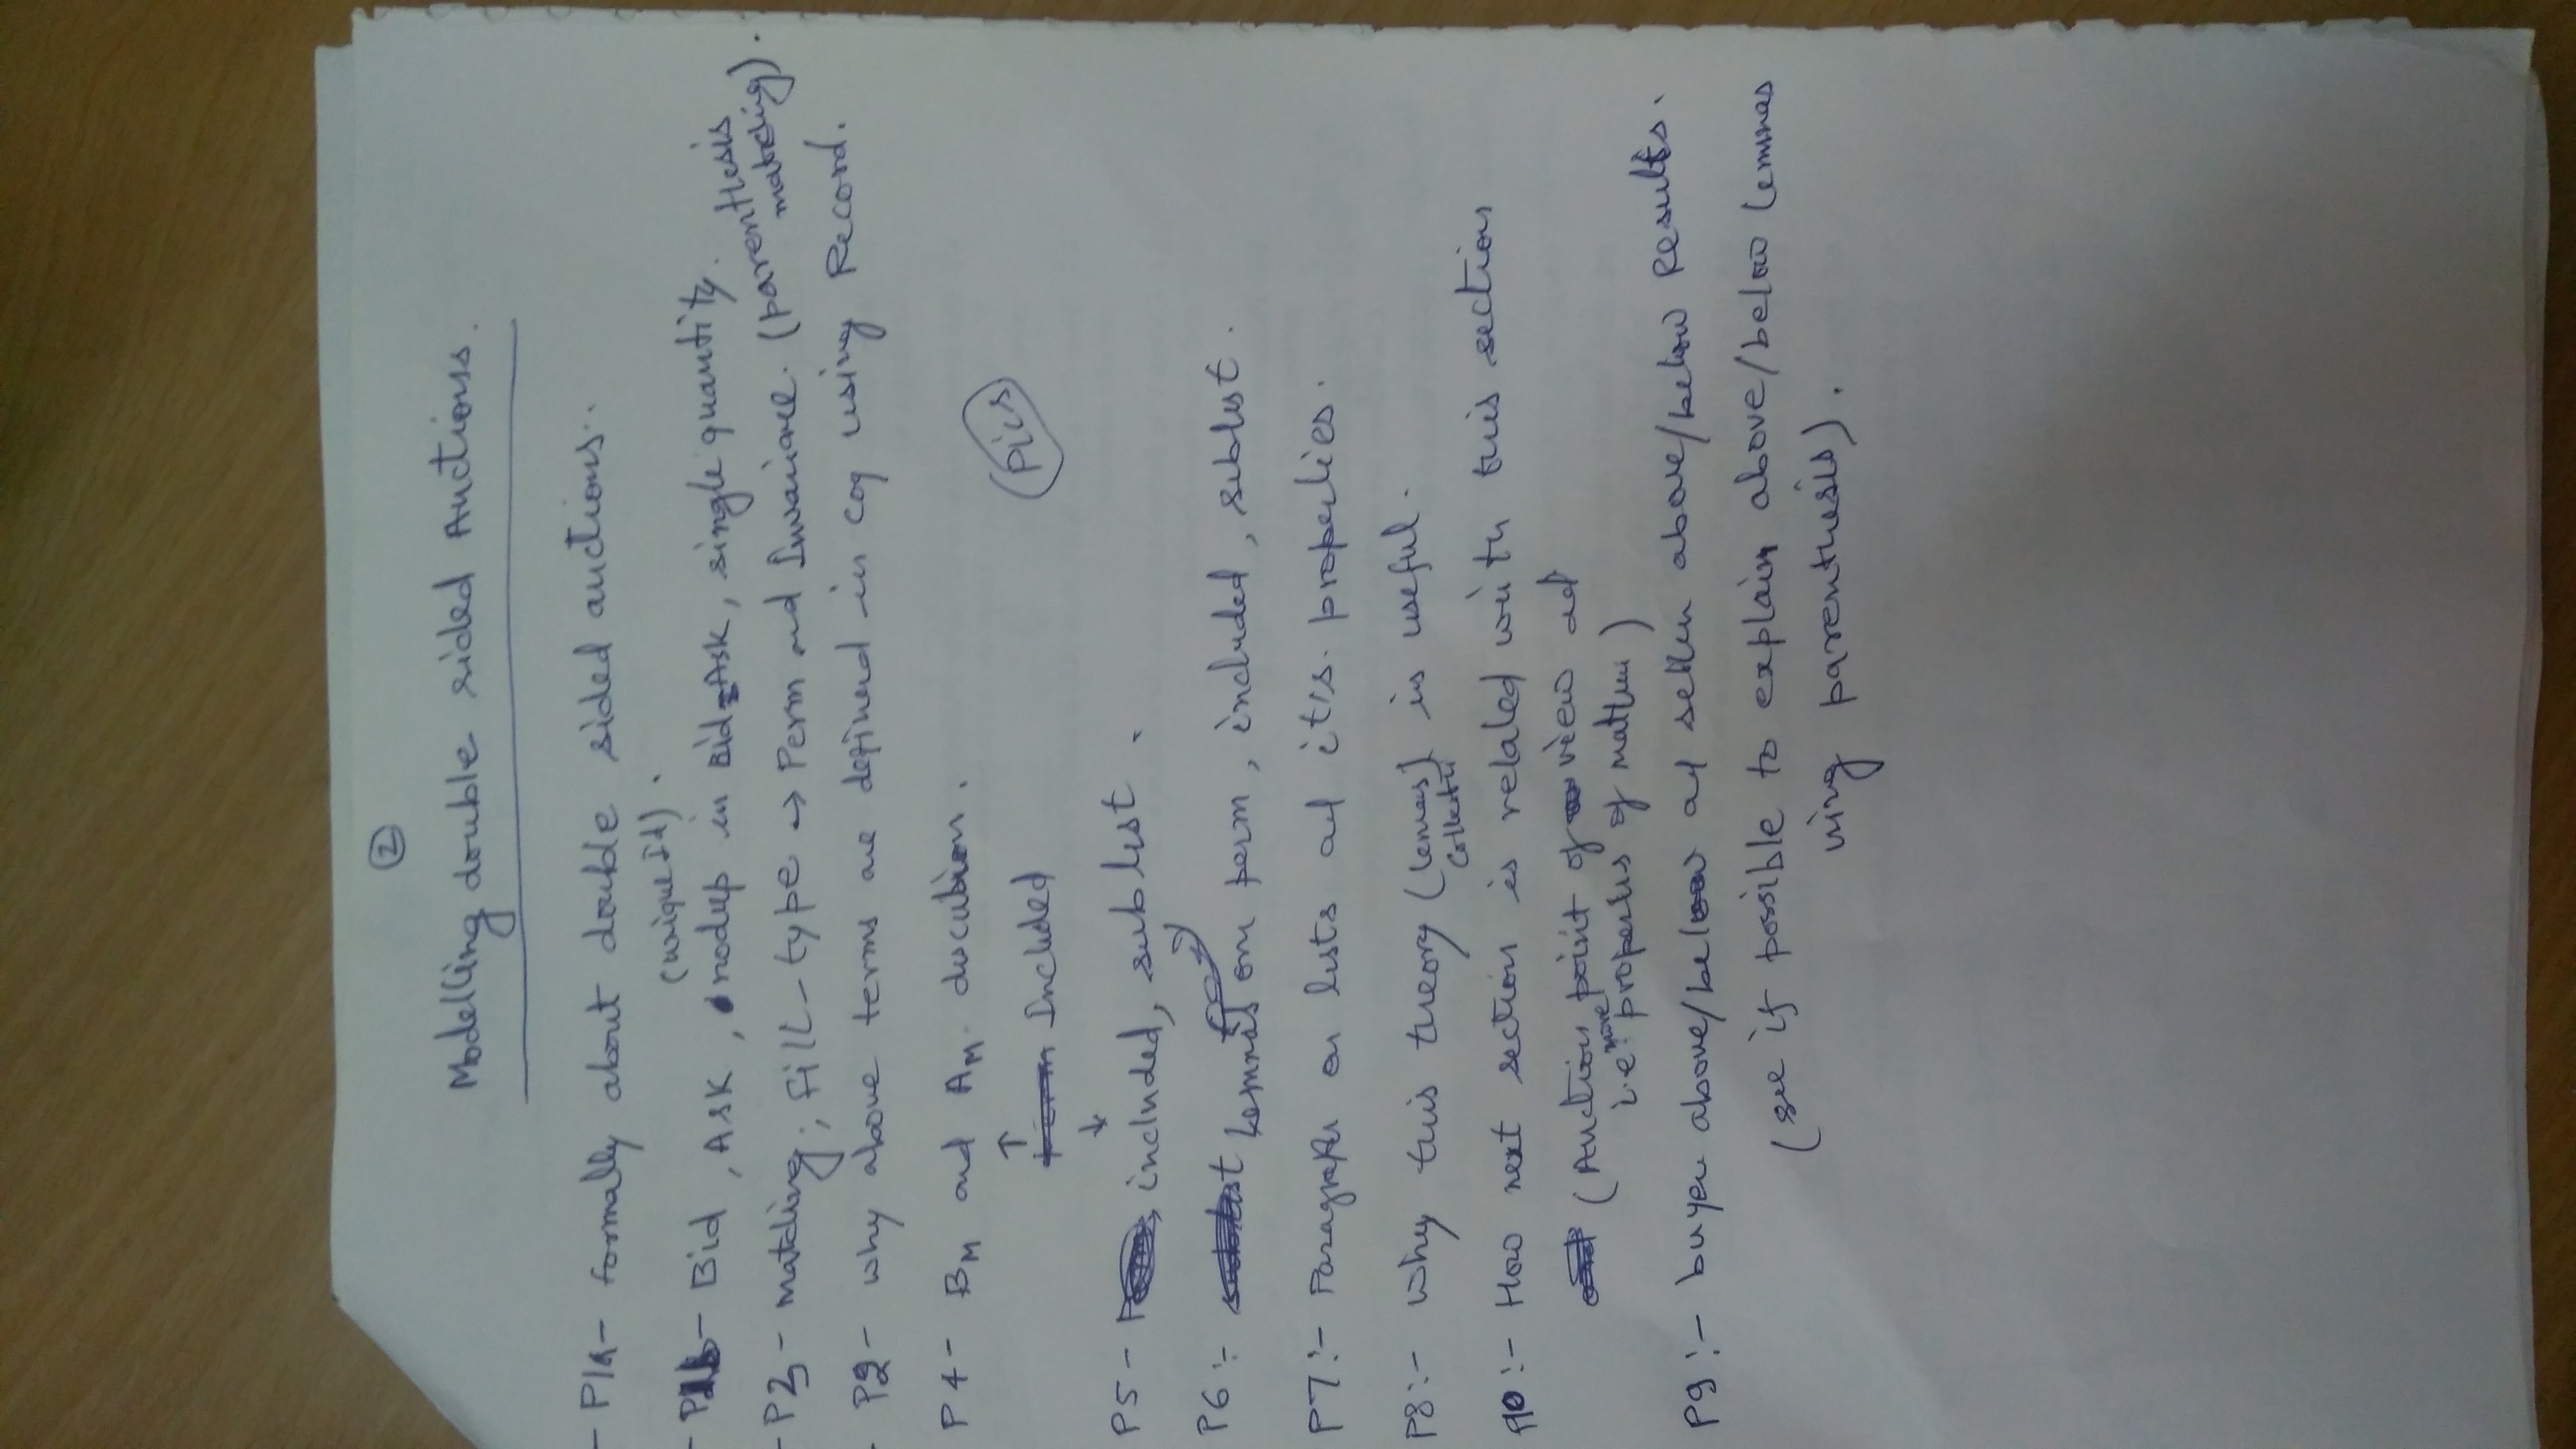 2
Modelling double sided Auctions.
- P1a- formally about double sided auctions..
(unique Id).
- P1b- Bid, Ask, nodup in Bid-Ask, single quantity.
- P3 - matching, fill-type → Perm and Invariance. (parenthesis
matching).
- P2- why above terms are defined in coq using Record.
P4- BM and AM.
↑
Perm Included
(Pics)
↓
P5- included, sublist.
P6:- sublist Lemmas on perm, included, sublist.
P7:- Paragraph on lists ad it's. properties.
P8:- why this theory (lemas) is useful.
P10:- How next section is related with this section
(Auction point of view ad
i.e. more properties of)
P9:- buyer above/below ad seller above/below Results.
(see if possible to explain above/below lemmas
using parenthesis).